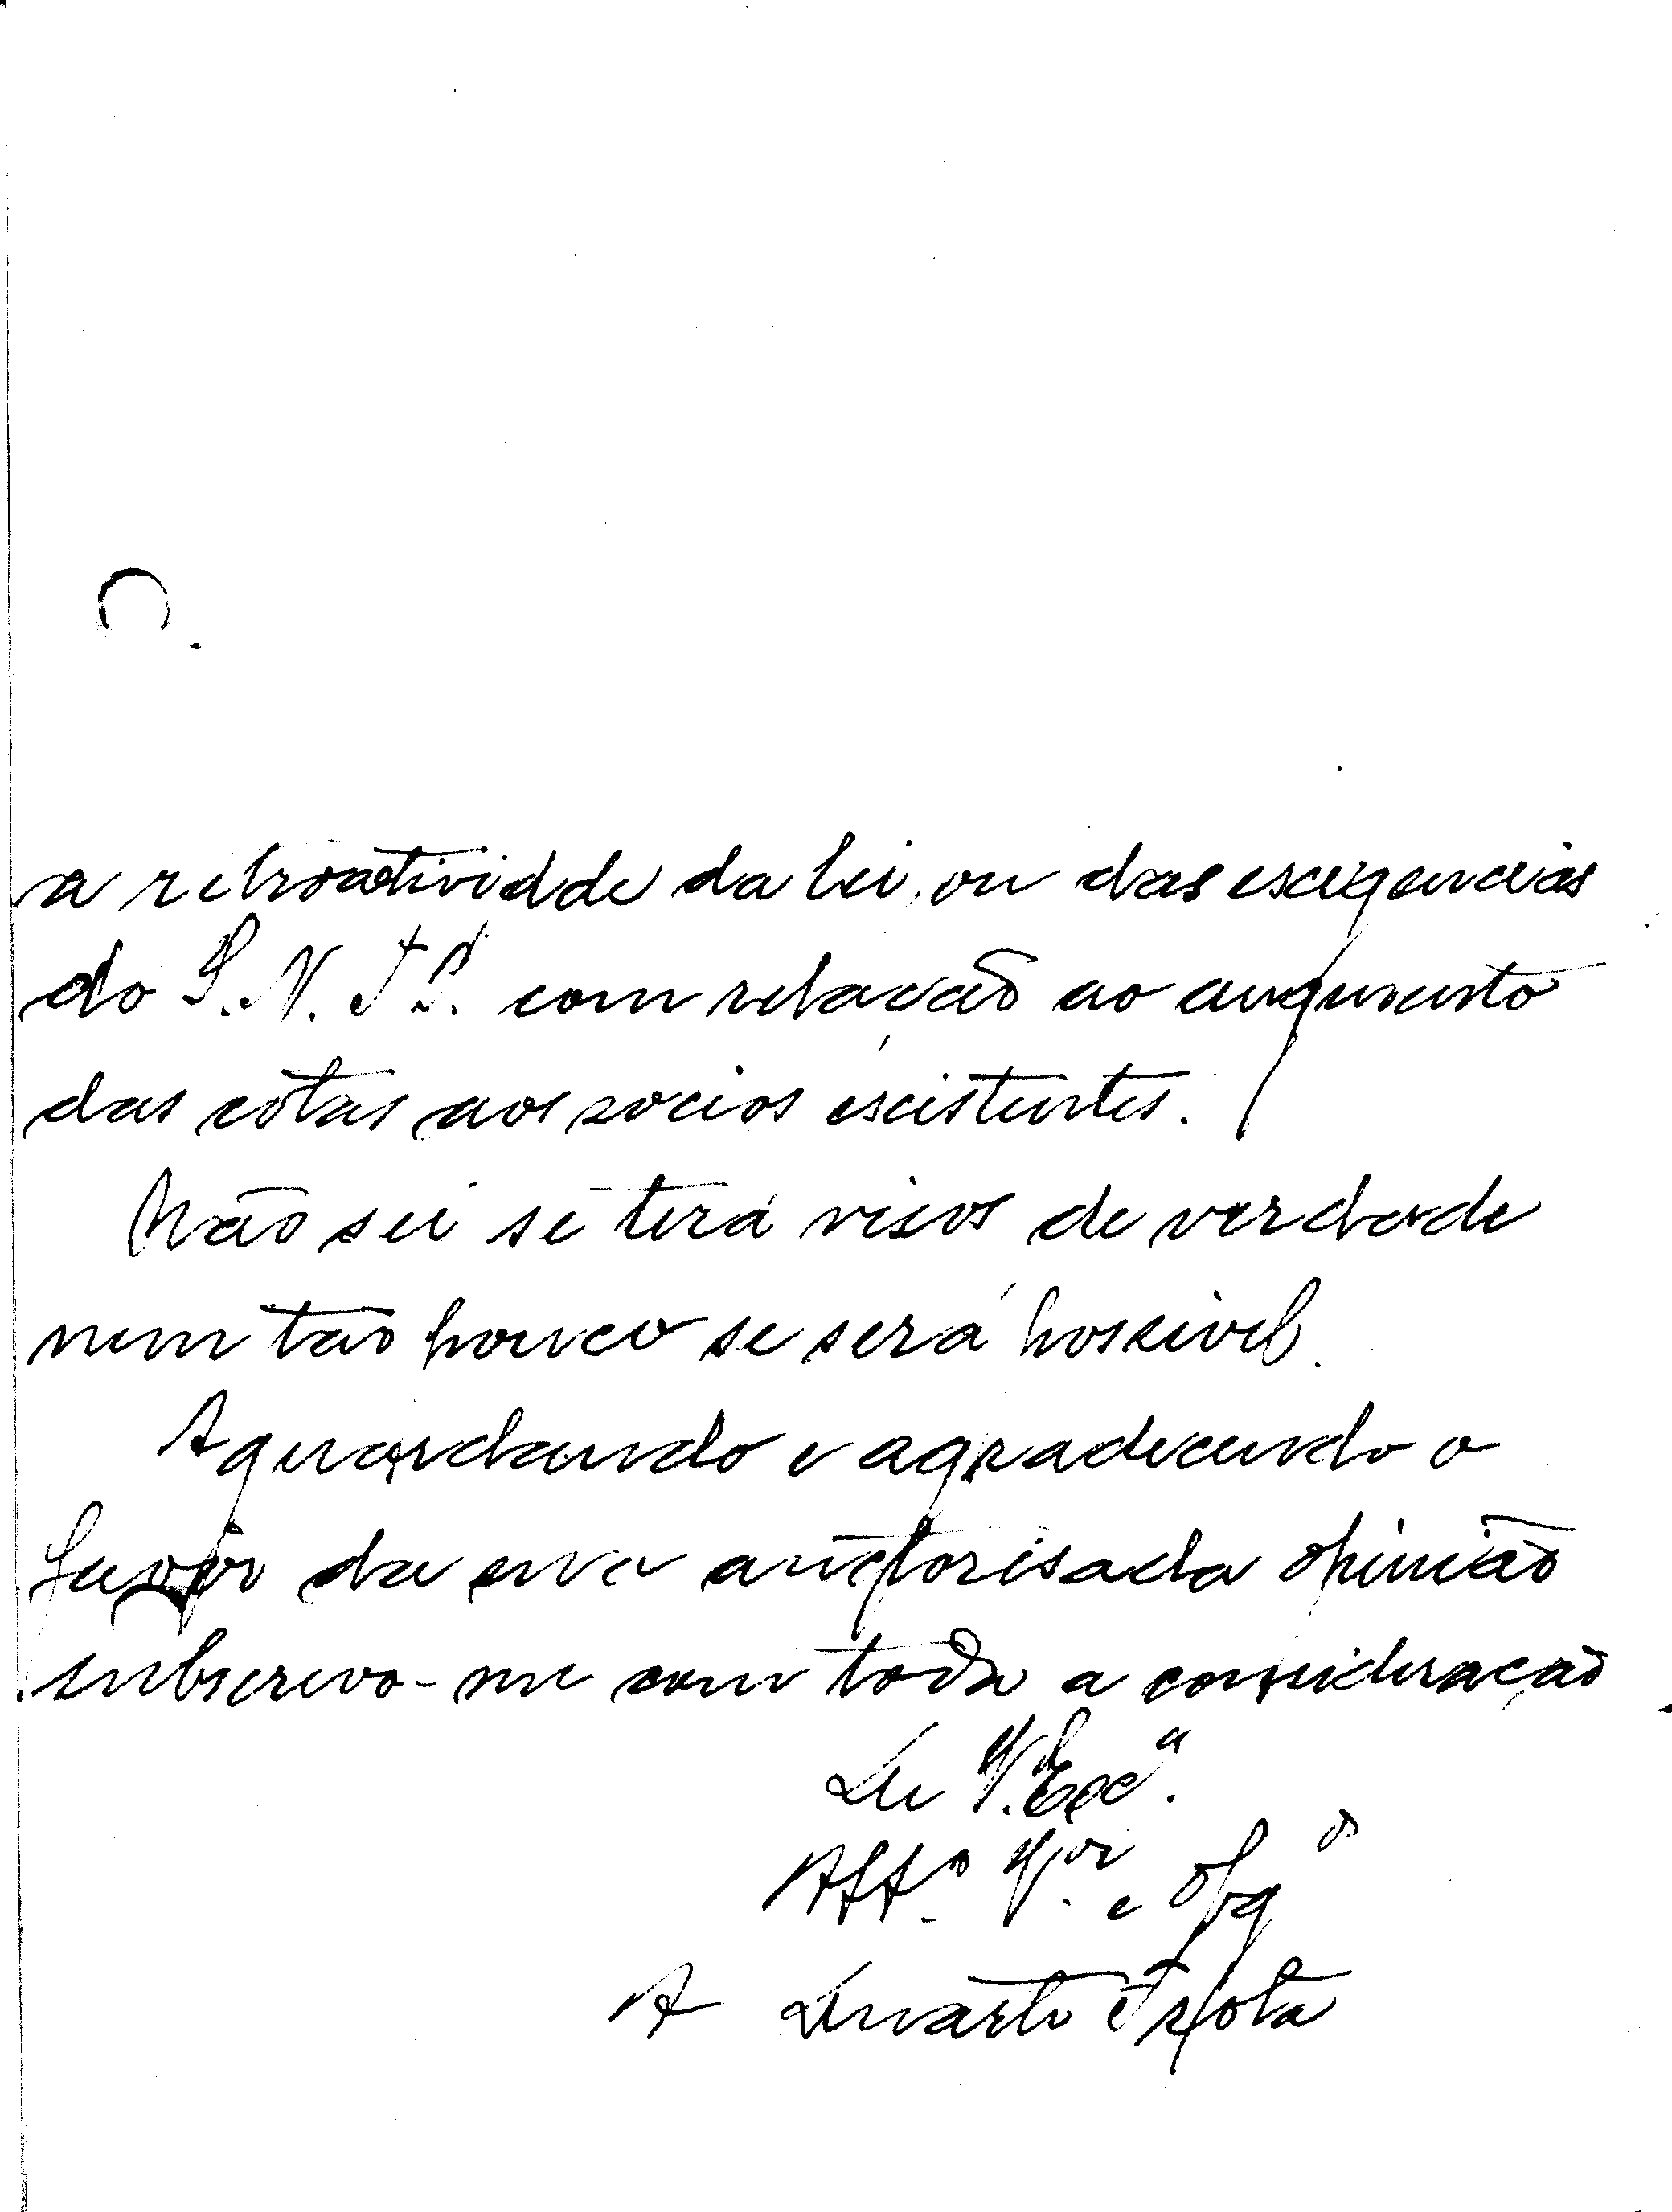 a retroatividde da lei, ou das exigencias
do S. N. T S. com relação ao augmento
das cotas aos socios existentes.
Não sei se terá visos de verdade
nem tão pouco se será possivel.
Aguardando e agradecendo o
favor da sua auctorisada opinião
subscrevo-me com toda a consideração
De V. Excª.
Attº Vor. e Obgº
A Duarte Frota